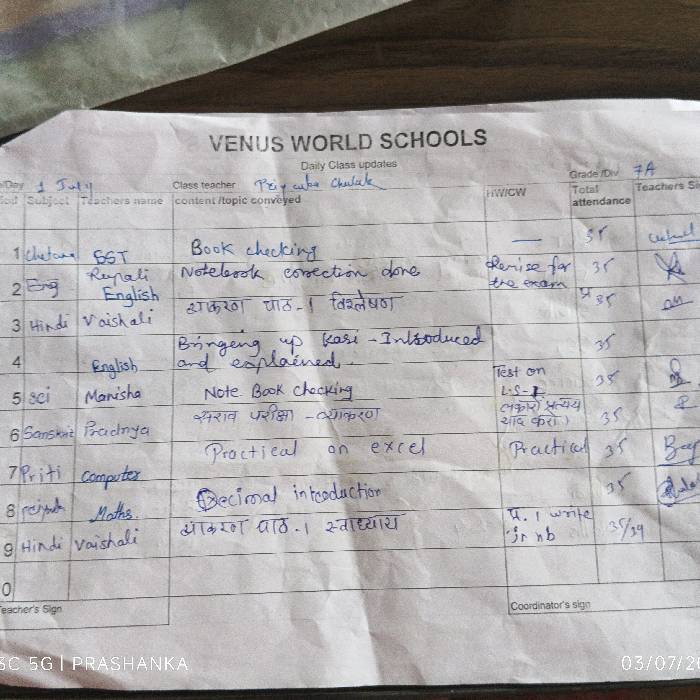 VENUS WORLD SCHOOLS
Daily Class updates
/Day 1 July Class teacher Priyanka Grade /Div 7A
Subject Teachers name content /topic conveyed HW/CW Total attendance Teachers Si
1 Chetana SST Book checking — 35
2 Eng Rupali English Notebook correction done Revise for the exam 35
3 Hindi Vaishali व्याकरण पाठ - 1 विश्लेषण 35
4 English Bringing up Kari - Introduced and explained. 35
5 Sci Manisha Note Book checking Test on L.S-1 35
6 Sanskrit Pradnya सराव परीक्षा - व्याकरण याद करो। 35
7 Priti Computer Practical on excel Practical 35
8 Maths. Decimal introduction 35
9 Hindi Vaishali व्याकरण पाठ - 1 स्वाध्याय प्र. 1 write in nb 35/39
0
eacher's Sign Coordinator's sign
3C 5G | PRASHANKA 03/07/20